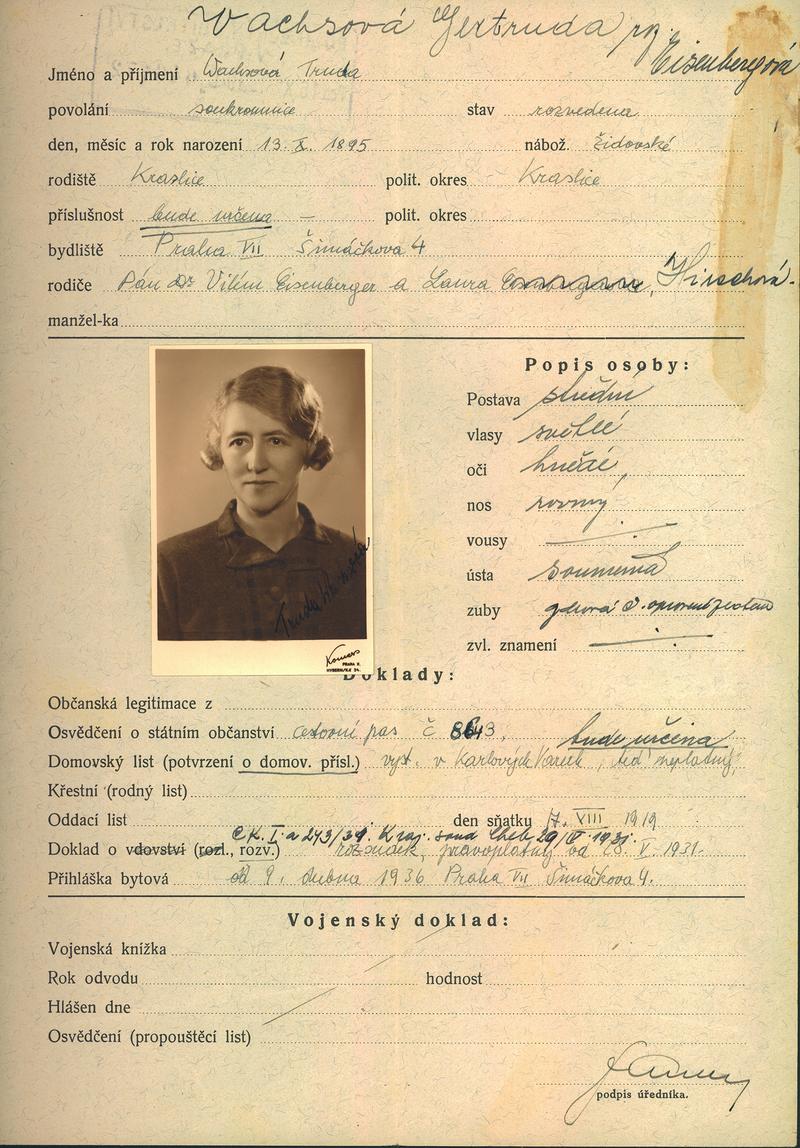 Wachsová Gertruda
Eisenbergová
Jméno a příjmení Wachsová Truda
povolání soukromnice stav rozvedena
den, měsíc a rok narození 13. X. 1895 nábož. židovské
rodiště Kraslice polit. okres Kraslice
příslušnost bude určena – polit. okres
bydliště Praha VII Šimáčkova 4
rodiče Pán Dr Vilém Eisenberger a Laura Hirschová.
manžel-ka
Popis osoby:
Postava střední
vlasy světlé
oči hnědé
nos rovný
vousy
ústa souměrná
zuby zdravá
zvl. znamení
Truda
PRAHA II.
Doklady:
Občanská legitimace z
Osvědčení o státním občanství cestovní pas č bude určena
Domovský list (potvrzení o domov. přísl.) vyst. v Karlových Varech, teď neplatný,
Křestní (rodný list)
Oddací list den sňatku 17. VIII 1919
CK. I a 273/31. Kraj. soud Cheb 29/IV. 1931.
Doklad o vdovství (rozl., rozv.) rozsudek, pravoplatný od 28. V. 1931.
Přihláška bytová od 9. dubna 1936 Praha VII Šimáčkova 4.
Vojenský doklad:
Vojenská knížka
Rok odvodu hodnost
Hlášen dne
Osvědčení (propouštěcí list)
podpis úředníka.